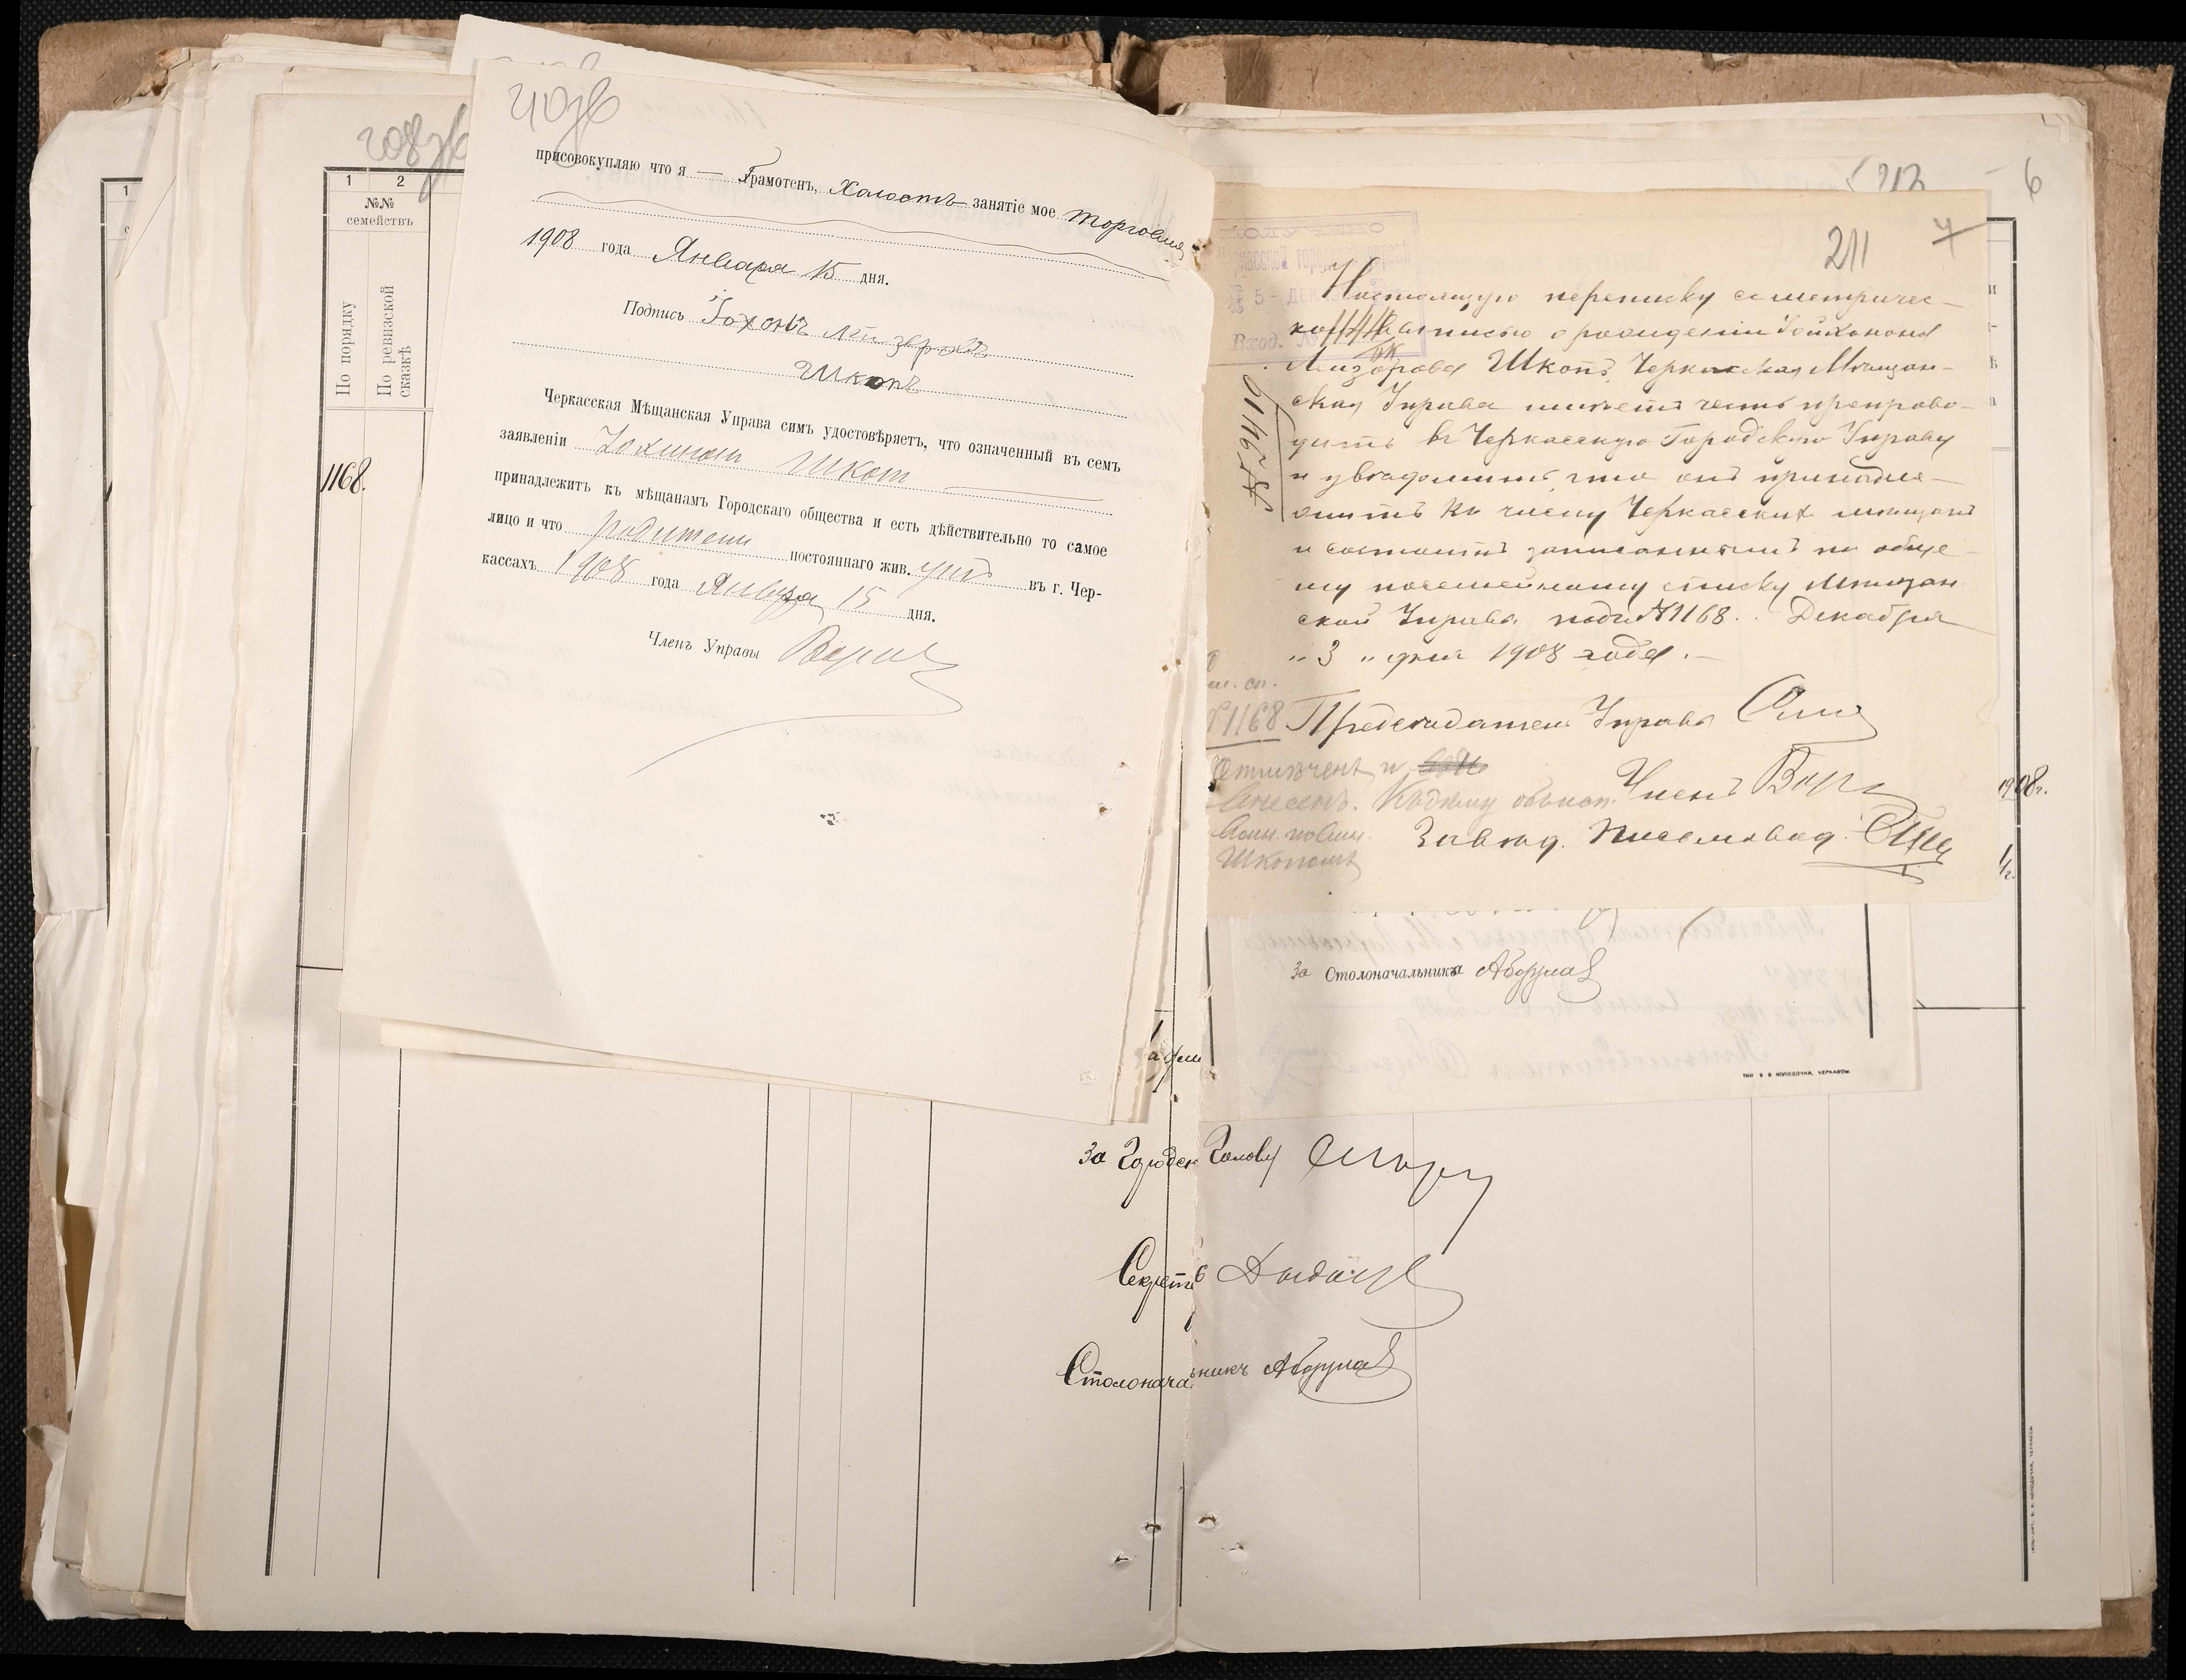 присовокупляю что я — Грамотенъ, Холостъ занятіе мое торговля
1908 года Января 15 дня.
Подпись Іохонъ Лейзеровъ
Шкопъ
Черкасская Мѣщанская Управа симъ удостовѣряетъ, что означенный въ семъ
заявленіи Шкоп
принадлежитъ къ мѣщанамъ Городскаго общества и есть дѣйствительно то самое
лицо и что родители постояннаго жив.утъ въ г. Чер-
кассахъ 1908 года Января 15 дня.
Членъ Управы
1
2
№№
семействъ
По порядку
По ревизской
сказкѣ
1168.
6
211
Настоящую переписку съ метричес-
кой выписью о рожденіи Іойхонона
Лейзерова Шкопъ, Черкасская Мѣщан-
ская Управа имѣетъ честь препрово-
дить въ Черкасскую Городскую Управу
и увѣдомить, что онъ принадле-
житъ къ числу Черкасскихъ мѣщанъ
и состоитъ записаннымъ по обще-
му посемейному списку Мѣщан
ской Управы подъ № 1168. Декабря
„ 3 „ дня 1908 года.
Вход. №
5 - ДЕК
№ 1168
Предсѣдатель Управы
Отмѣченъ и
Внесенъ.
Членъ
Завѣд. Письмовод.
1908г.
За Столоначальника
ТИП. В. В. КОЛОДОЧКИ, ЧЕРКАССЫ.
За Городск Голову
Секрет
Столонача ьникъ